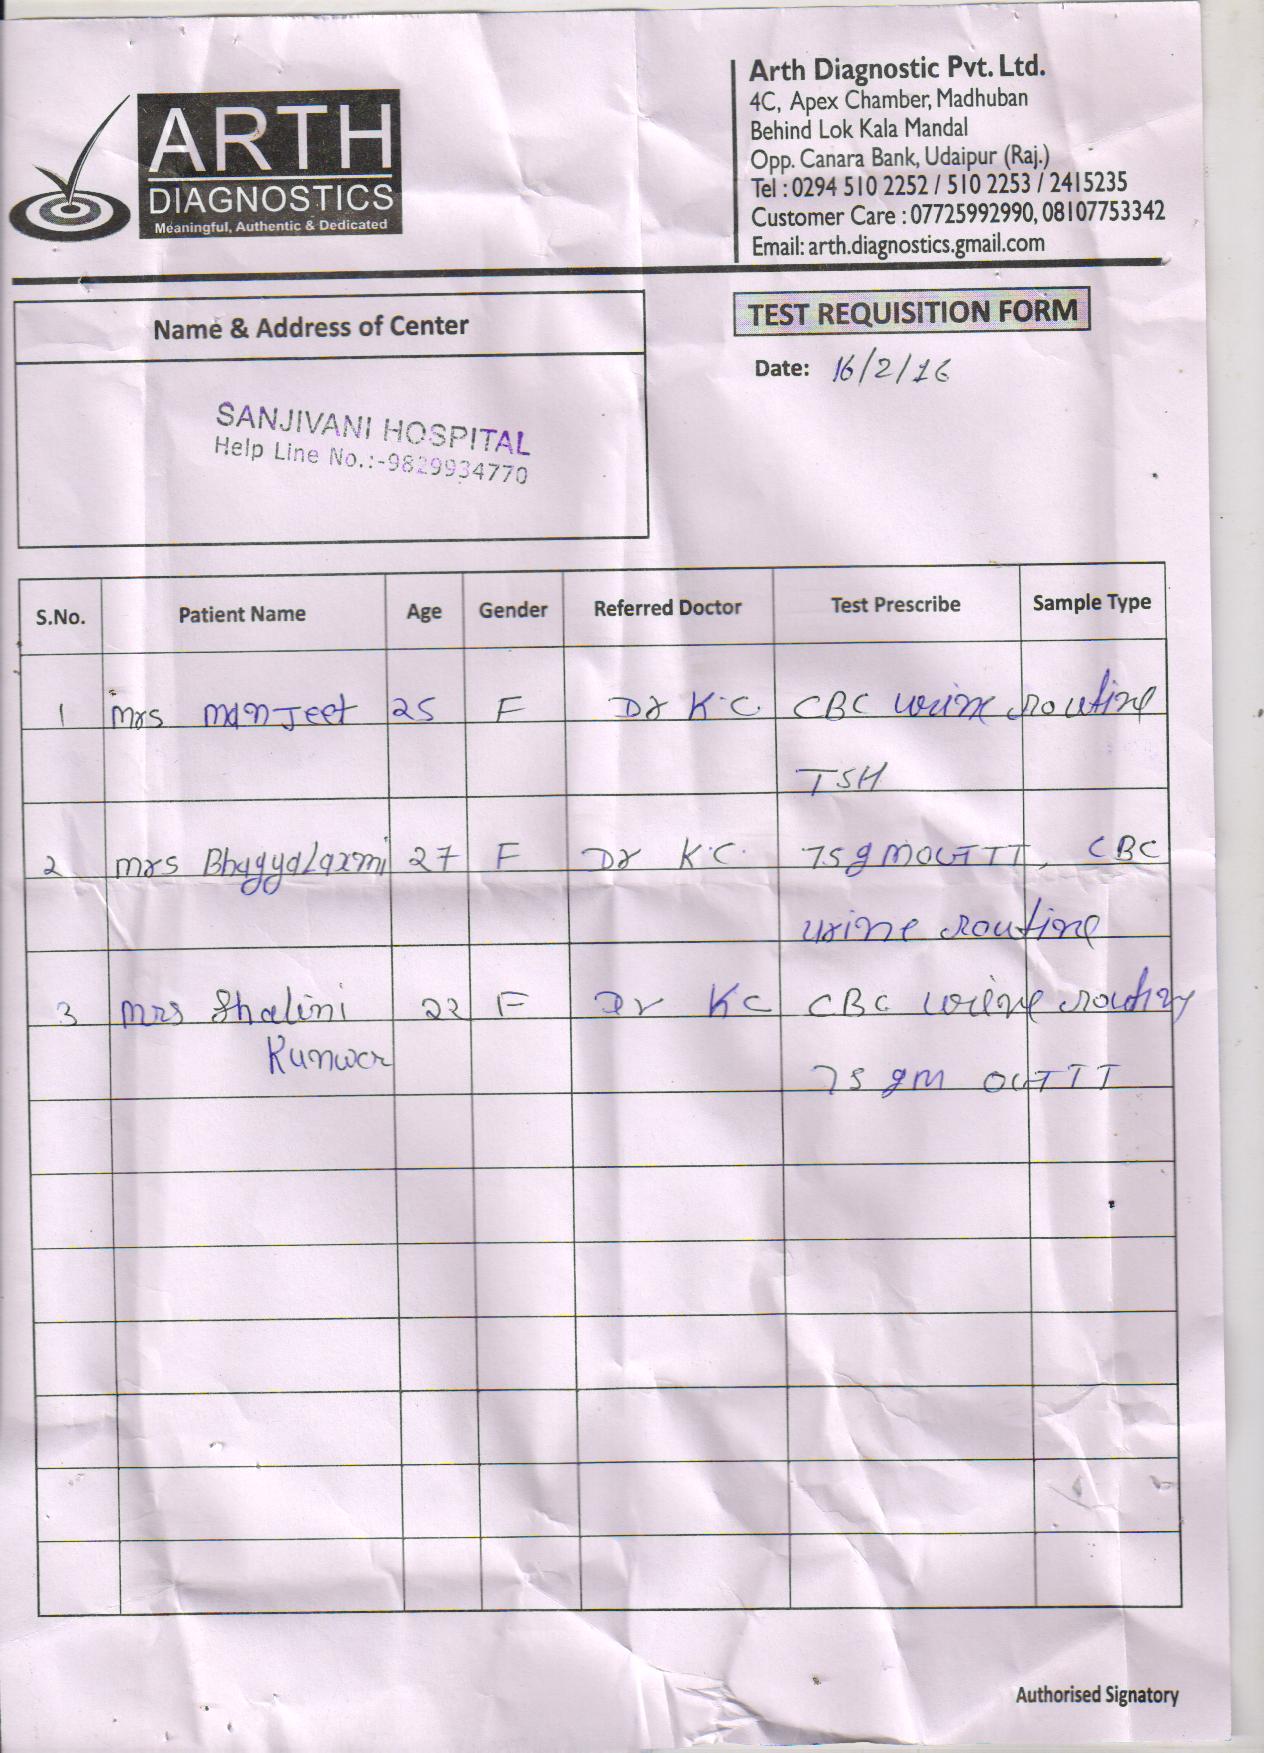 ARTH
DIAGNOSTICS
Meaningful, Authentic & Dedicated
Arth Diagnostic Pvt. Ltd.
4C, Apex Chamber, Madhuban
Behind Lok Kala Mandal
Opp. Canara Bank, Udaipur (Raj.)
Tel : 0294 510 2252 / 510 2253 / 2415235
Customer Care : 07725992990, 08107753342
Email: arth.diagnostics.gmail.com
Name & Address of Center
SANJIVANI HOSPITAL
Help Line No.:-9829934770
TEST REQUISITION FORM
Date: 16/2/16
S.No. Patient Name Age Gender Referred Doctor Test Prescribe Sample Type
1 Mrs Manjeet 25 F Dr K.C. CBC urine routine
TSH
2 Mrs BhagyaLaxmi 27 F Dr K.C. 75gm CBC
urine routine
3 Mrs Shalini 22 F Dr KC CBC urine
Kunwar 75 gm
Authorised Signatory